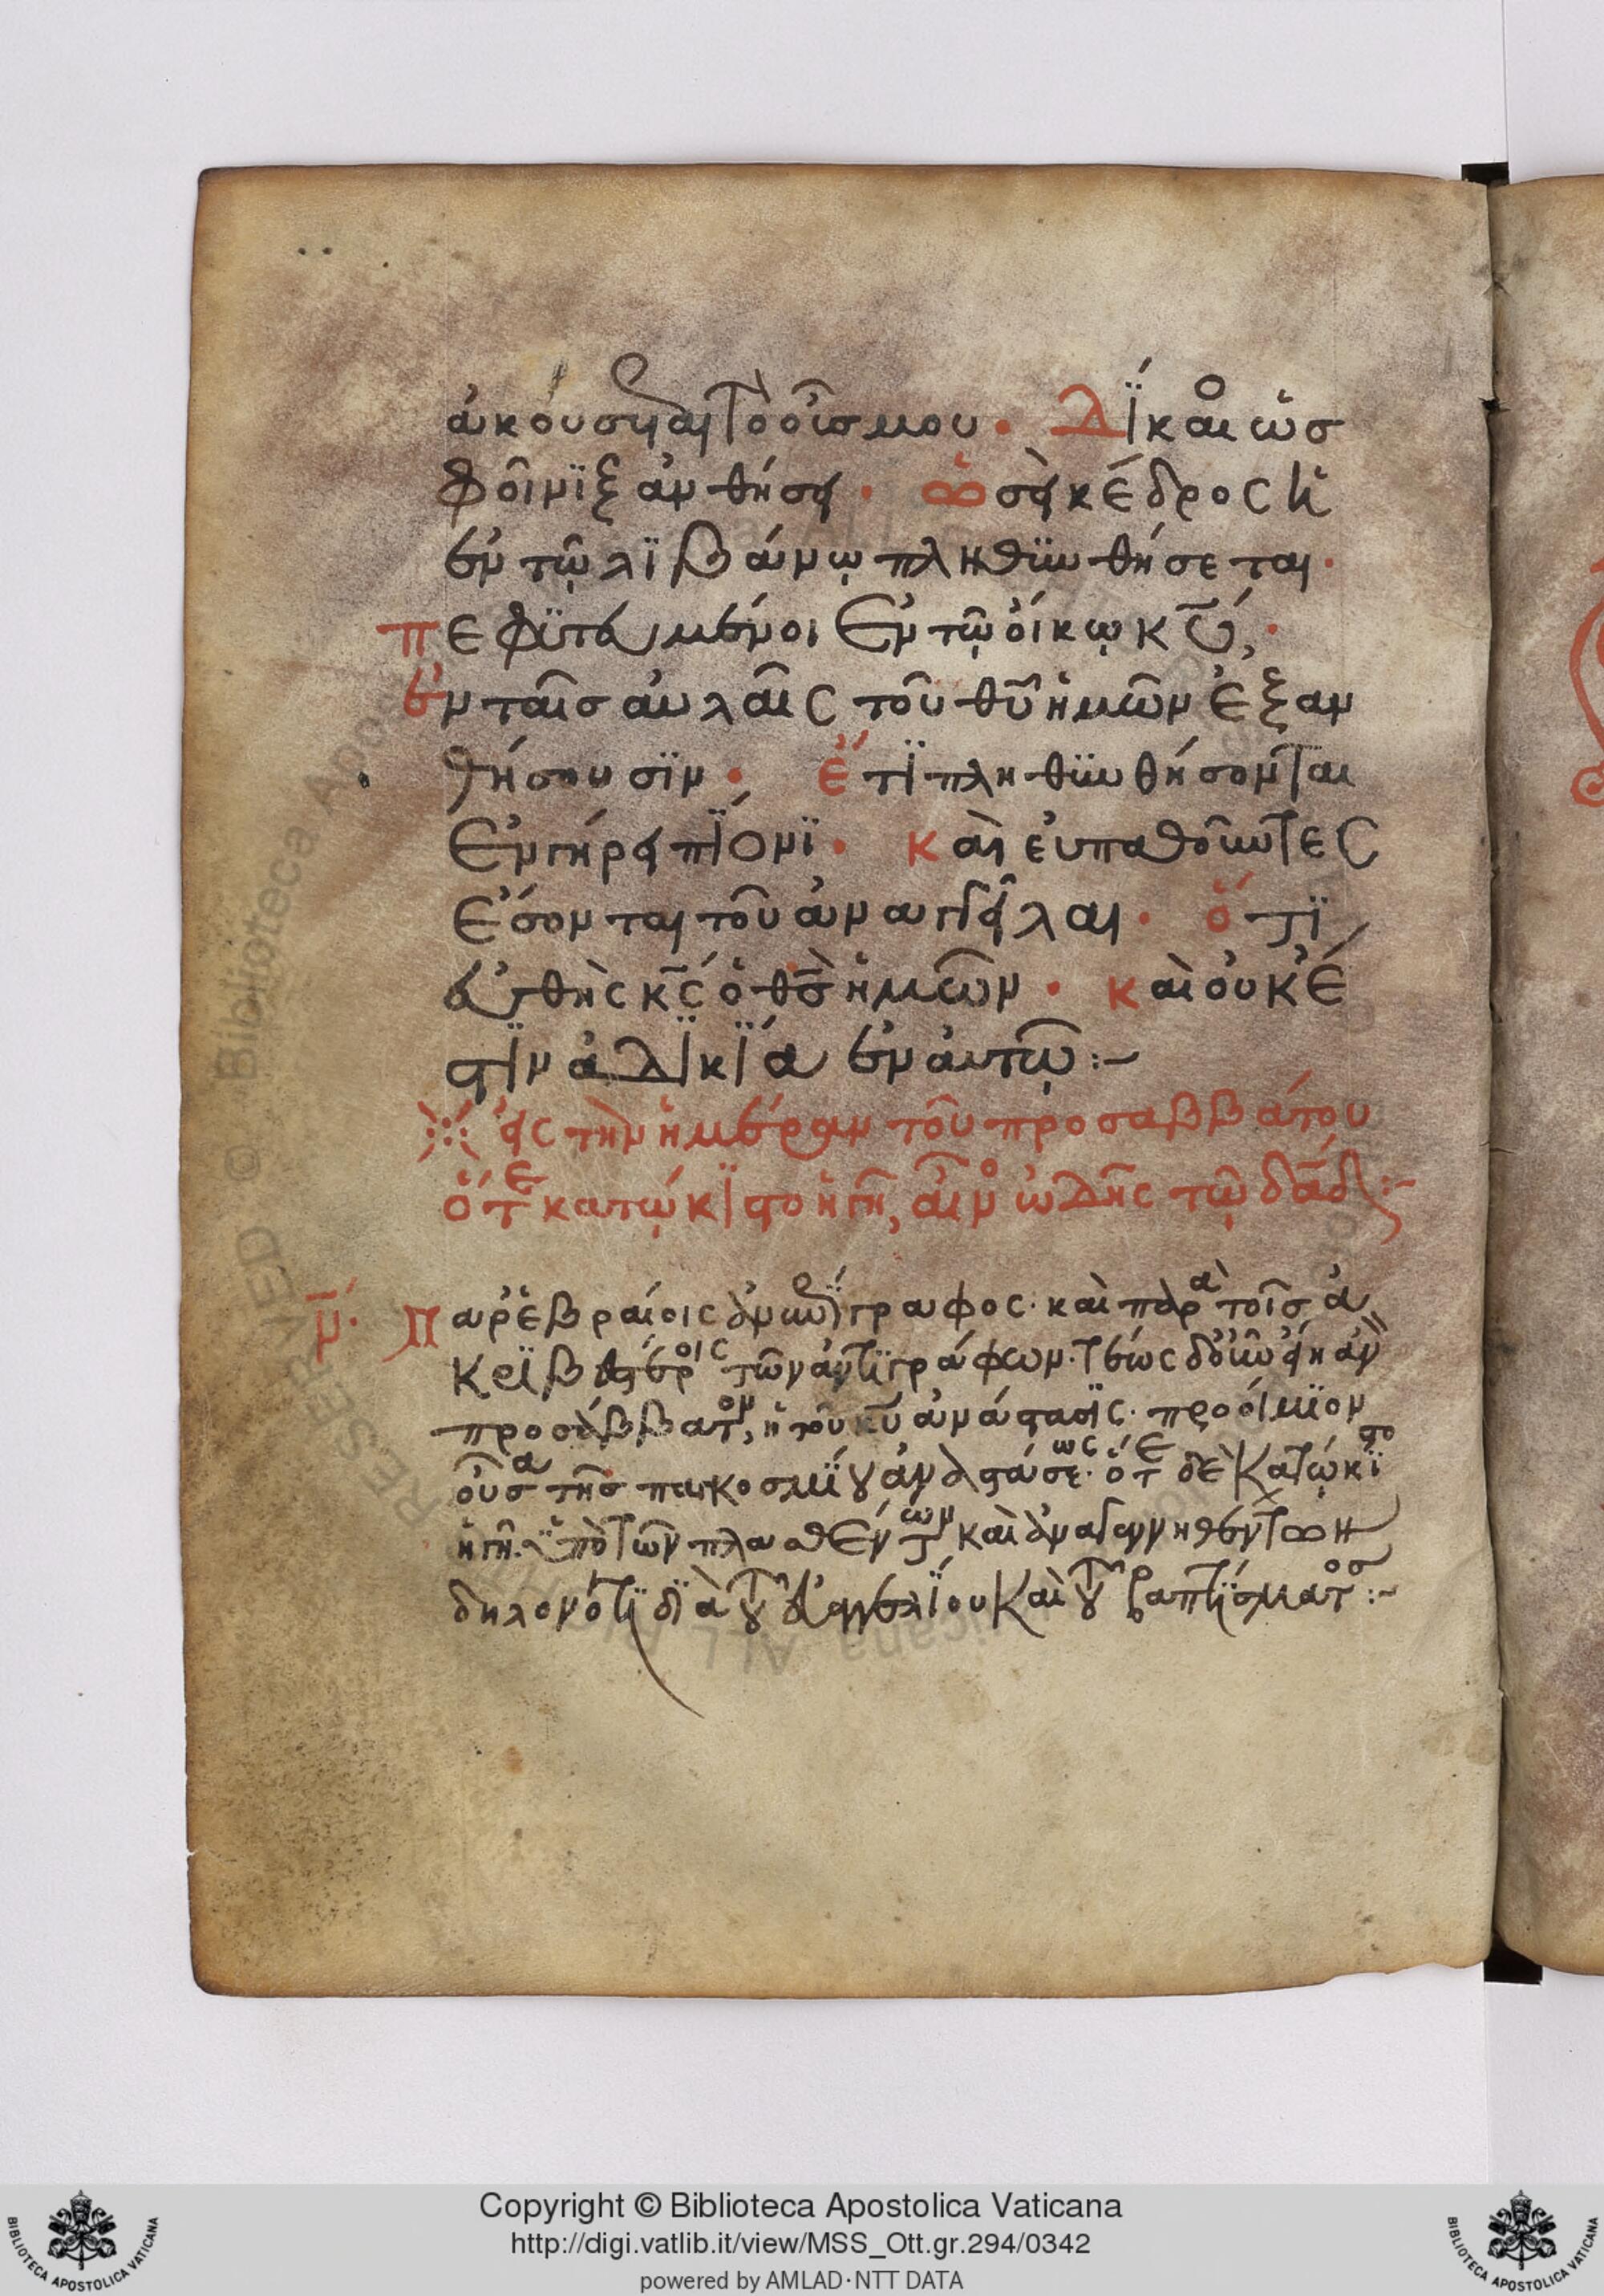 ἀκούσηται τὸ οὖς μου · Δίκαιος ὡς
φοῖνιξ ἀνθήσει · ὡσεὶ κέδρος ἡ
ἐν τῷ Λιβάνῳ πληθυνθήσεται ·
πεφυτευμένοι ἐν τῷ οἴκῳ κυ, ·
ἐν ταῖς αὐλαῖς τοῦ θυ ἡμῶν ἐξαν
θήσουσιν · ἔτι πληθυνθήσονται
ἐν γήρει πίονι · καὶ εὐπαθοῦντες
ἔσονται τοῦ ἀναγγεῖλαι · ὅτι
εὐθὴς κς ὁ θς ἡμῶν · καὶ οὐκ ἔ
στιν ἀδικία ἐν αὐτῷ :~
εἰς τὴν ἡμέραν τοῦ προσαββάτου
ὅτε κατῴκισto ἡ γῆ, αἶνος ὠδῆς τῷ δαδ :~
μ · Παρ' ἑβραίοις ἀνεπίγραφος · καὶ παρὰ τοῖς ἀ
κριβεστέροις τῶν ἀντιγράφων ·
προσάββατον, ἡ τοῦ κυ ἀνάστασις · προοίμιον
οὖσα τῆς παγκοσμίου ἀναστάσεως · ὅτε δὲ κατῴκιστο
ἡ γῆ · ὑπὸ τῶν πλασθέντων καὶ ἀναγεννηθέντων
δηλονότι διὰ τοῦ εὐαγγελίου καὶ τοῦ βαπτίσματος :~
Copyright © Biblioteca Apostolica Vaticana
http://digi.vatlib.it/view/MSS_Ott.gr.294/0342
powered by AMLAD·NTT DATA
BIBLIOTECA APOSTOLICA VATICANA
BIBLIOTECA APOSTOLICA VATICANA